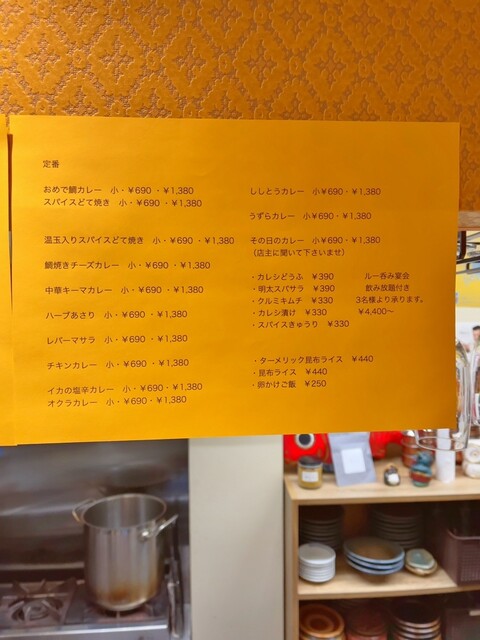 定番
おめで鯛カレー 小・¥690 ・¥1,380
スパイスどて焼き 小・¥690 ・¥1,380
温玉入りスパイスどて焼き 小・¥690 ・¥1,380
鯛焼きチーズカレー 小・¥690 ・¥1,380
中華キーマカレー 小・¥690 ・¥1,380
ハーブあさり 小・¥690 ・¥1,380
レバーマサラ 小・¥690 ・¥1,380
チキンカレー 小・¥690 ・¥1,380
イカの塩辛カレー 小・¥690 ・¥1,380
オクラカレー 小・¥690・¥1,380
ししとうカレー 小¥690・¥1,380
うずらカレー 小¥690・¥1,380
その日のカレー 小¥690・¥1,380
(店主に聞いて下さいませ)
・カレシどうふ ¥390
・明太スパサラ ¥390
・クルミキムチ ¥330
・カレシ漬け ¥330
・スパイスきゅうり ¥330
ルー呑み宴会
飲み放題付き
3名様より承ります。
¥4,400〜
・ターメリック昆布ライス ¥440
・昆布ライス ¥440
・卵かけご飯 ¥250